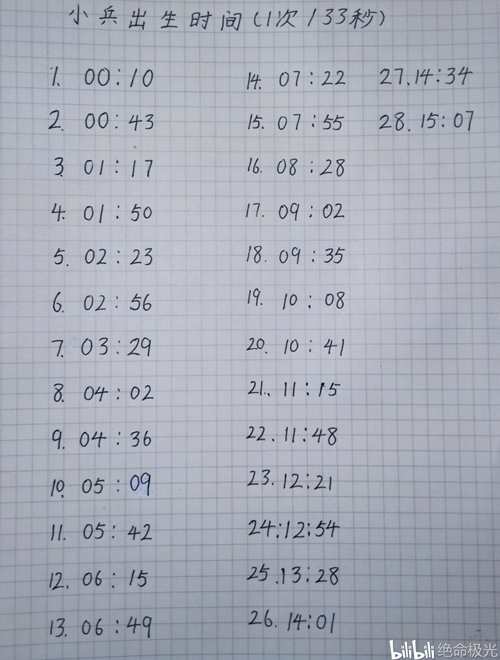 小兵出生时间(1次/33秒)
1. 00:10
2. 00:43
3. 01:17
4. 01:50
5. 02:23
6. 02:56
7. 03:29
8. 04:02
9. 04:36
10. 05:09
11. 05:42
12. 06:15
13. 06:49
14. 07:22
15. 07:55
16. 08:28
17. 09:02
18. 09:35
19. 10:08
20. 10:41
21. 11:15
22. 11:48
23. 12:21
24:12:54
25.13:28
26. 14:01
27.14:34
28. 15:07
bilibili 绝命极光